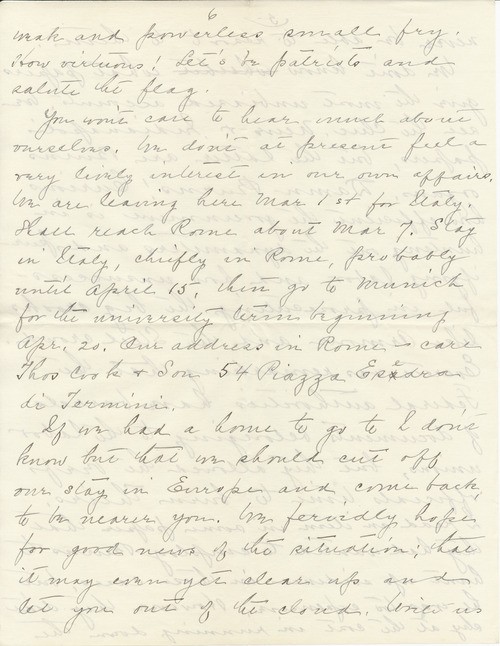 6
weak and powerless small fry.
How virtuous! Let's be patriots and
salute the flag.
You won't care to hear much about
ourselves. We don't at present feel a
very lively interest in our own affairs.
We are leaving here Mar 1st for Italy.
Shall reach Rome about Mar 7. Stay
in Italy, chiefly in Rome, probably
until April 15, then go to Munich
for the university term beginning
Apr. 20. Our address in Rome – care
Thos Cook & Son 54 Piazza Esedra
di Termini.
If we had a home to go to I don't
know but that we should cut off
our stay in Europe and come back
to be nearer you. We fervidly hope
for good news of the situation; that
it may even yet clear up and
let you out of the cloud. Write us